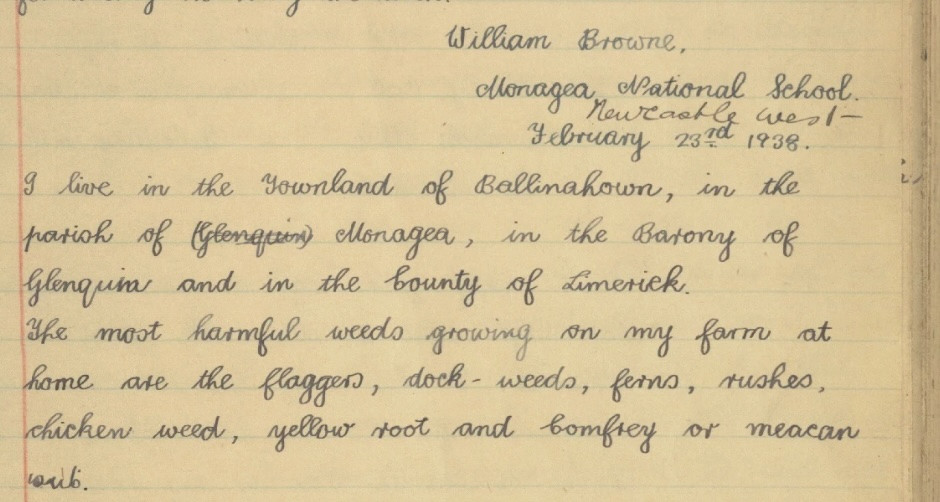 William Browne,
Monagea National School.
Newcastle West
February 23rd 1938.
I live in the Townland of Ballinahown, in the
parish of (Glenquin) Monagea, in the Barony of
Glenquin and in the County of Limerick.
The most harmful weeds growing on my farm at
home are the flaggers, dock-weeds, ferns, rushes,
chicken weed, yellow root and Comfrey or meacan